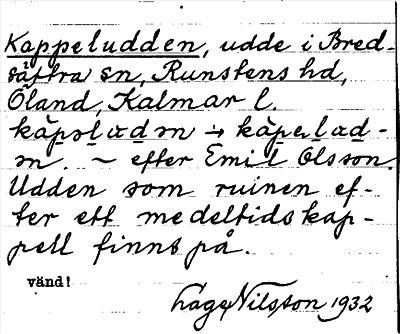 Kappeludden, udde i Bred-
sättra sn, Runstens hd,
Öland, Kalmar l.
efter Emil Olsson.
Udden som ruinen ef-
ter ett medeltidskap-
pell finns på.
vänd!
Lage Nilsson 1932